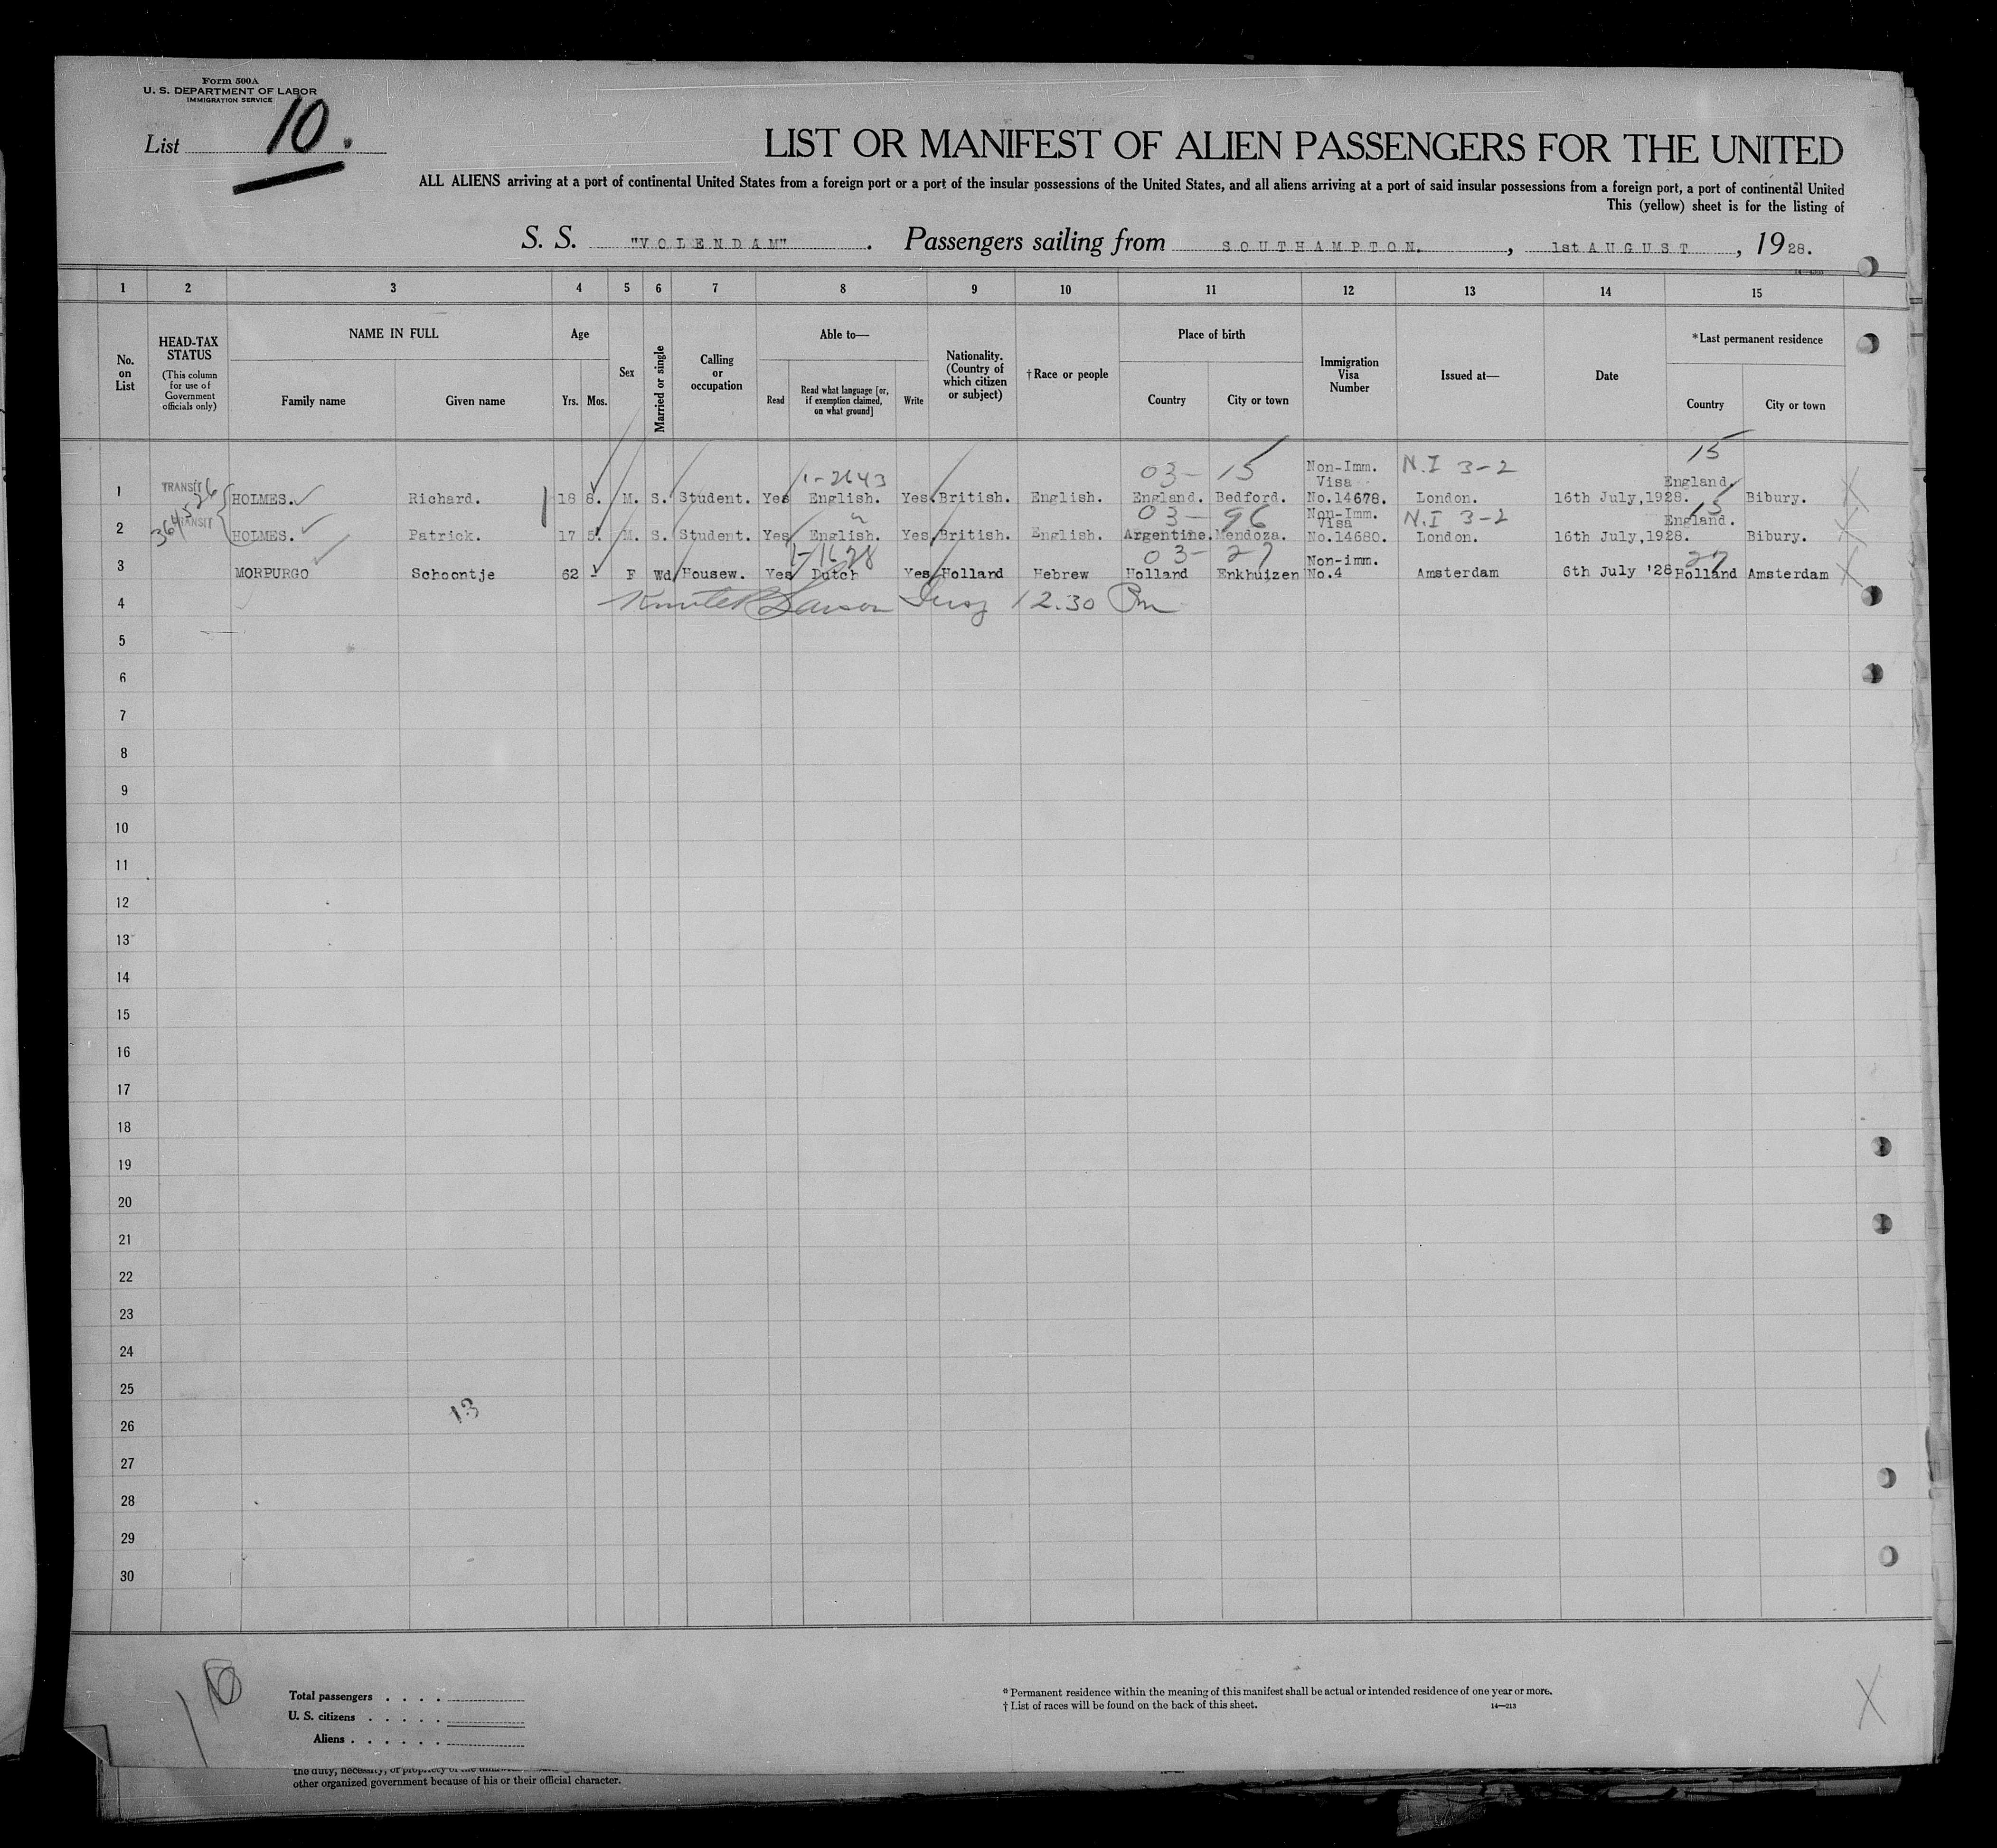 Form 500A
U. S. DEPARTMENT OF LABOR
IMMIGRATION SERVICE
List 10.
LIST OR MANIFEST OF ALIEN PASSENGERS FOR THE UNITED
ALL ALIENS arriving at a port of continental United States from a foreign port or a port of the insular possessions of the United States, and all aliens arriving at a port of said insular possessions from a foreign port, a port of continental United
This (yellow) sheet is for the listing of
S. S. "VOLENDAM" . Passengers sailing from SOUTHAMPTON. , 1st AUGUST , 1928.
1 2 3 4 5 6 7 8 9 10 11 12 13 14 15
No. on List
HEAD-TAX STATUS (This column for use of Government officials only)
NAME IN FULL
Family name Given name
Age
Yrs. Mos.
Sex
Married or single
Calling or occupation
Able to—
Read Read what language [or, if exemption claimed, on what ground] Write
Nationality. (Country of which citizen or subject)
†Race or people
Place of birth
Country City or town
Immigration Visa Number
Issued at—
Date
*Last permanent residence
Country City or town
1-2643 03- 15 Non-Imm. N.I 3-2 15
TRANSIT Visa England.
1 HOLMES. Richard. 18 8. M. S. Student. Yes English. Yes. British. English. England. Bedford. No.14678. London. 16th July,1928. Bibury.
03- 96 Non-Imm. N.I 3-2 15
TRANSIT Visa England.
2 HOLMES. Patrick. 17 5. M. S. Student. Yes English. Yes British. English. Argentine. Mendoza. No.14680. London. 16th July,1928. Bibury.
1-1628 03- 27 Non-imm. 27
3 MORPURGO Schoontje 62 - F Wd Housew. Yes Dutch Yes Holland Hebrew Holland Enkhuizen No.4 Amsterdam 6th July '28 Holland Amsterdam
4 Larson 12.30 Pm
5
6
7
8
9
10
11
12
13
14
15
16
17
18
19
20
21
22
23
24
25
13
26
27
28
29
30
Total passengers . . . .
U. S. citizens . . . . .
Aliens . . . . . .
* Permanent residence within the meaning of this manifest shall be actual or intended residence of one year or more.
† List of races will be found on the back of this sheet. 14—213
X
the duty, necessity, or propriety of the
other organized government because of his or their official character.